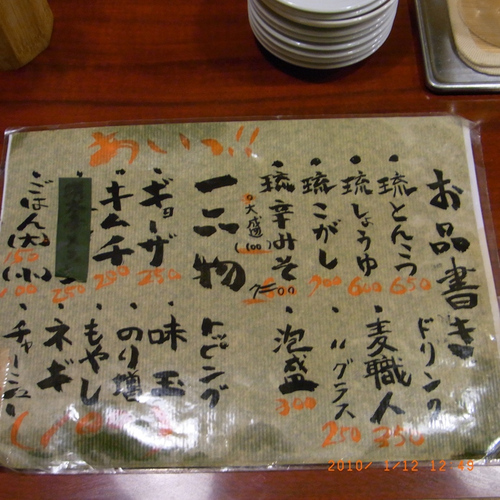 お品書き
・琉とんこつ 650
・琉しょうゆ 600
・琉こがし 700
・琉辛みそ 700
大盛(100)
ドリンク
・麦職人 350
・〃グラス 250
・泡盛 300
一品物
・ギョーザ 250
・キムチ 250
250
・ごはん(大) 150
(小) 100
トッピング
・味玉
・のり増
・もやし
・ネギ
・チャーシュー
(100)
あいっ!!
2010/ 1/12 12:49